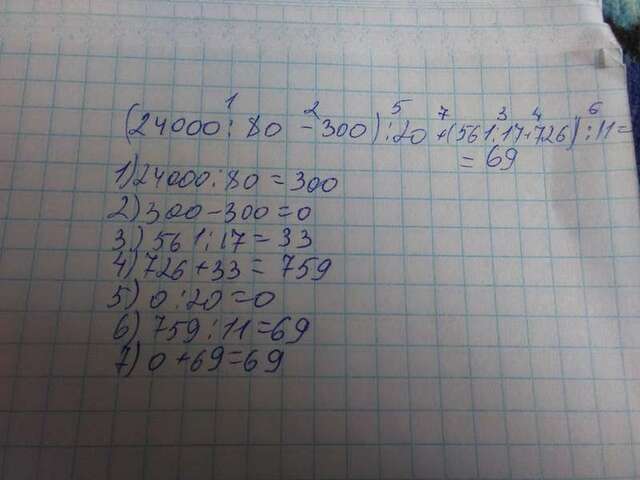 1 2 5 7 3 4 6
(24000 : 80 - 300) : 20 + (561:17+726) : 11 =
= 69
1) 24000 : 80 = 300
2) 300 - 300 = 0
3) 561 : 17 = 33
4) 726 + 33 = 759
5) 0 : 20 = 0
6) 759 : 11 = 69
7) 0 + 69 = 69